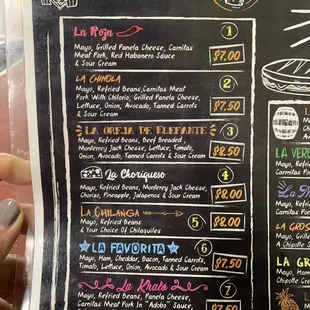 La Roja 1
Mayo, Grilled Panela Cheese, Carnitas
Meat Pork, Red Habanero Sauce
& Sour Cream
$7.00
La Chinola 2
Mayo, Refried Beans, Carnitas Meat
Pork With Chilorio, Grilled Panela Cheese,
Lettuce, Onion, Avocado, Tanned Carrots
& Sour Cream
$7.50
La Oreja de Elefante 3
Mayo, Refried Beans, Beef Breaded,
Monterrey Jack Cheese, Lettuce, Tomato,
Onion, Avocado, Tanned Carrots & Sour Cream
$8.50
La Choriqueso 4
Mayo, Refried Beans, Monterey Jack Cheese,
Chorizo, Pineapple, Jalapenos & Sour Cream
$8.00
La Chilanga 5
Mayo, Refried Beans
& Your Choice Of Chilaquiles
$8.00
La Favorita 6
Mayo, Ham, Cheddar, Bacon, Tanned Carrots,
Tomato, Lettuce, Onion, Avocado & Sour Cream
$7.50
La Khalo 7
Mayo, Refried Beans, Panela Cheese,
Carnitas Meat Pork In "Adobo" Sauce,
$7.50
Mayo,
Chipotle
La Verd
Mayo, Grill
& Cream
La
Mayo,
& Cream
La Gros
Mayo, Grille
A Chipotle S
La Gr
Mayo,